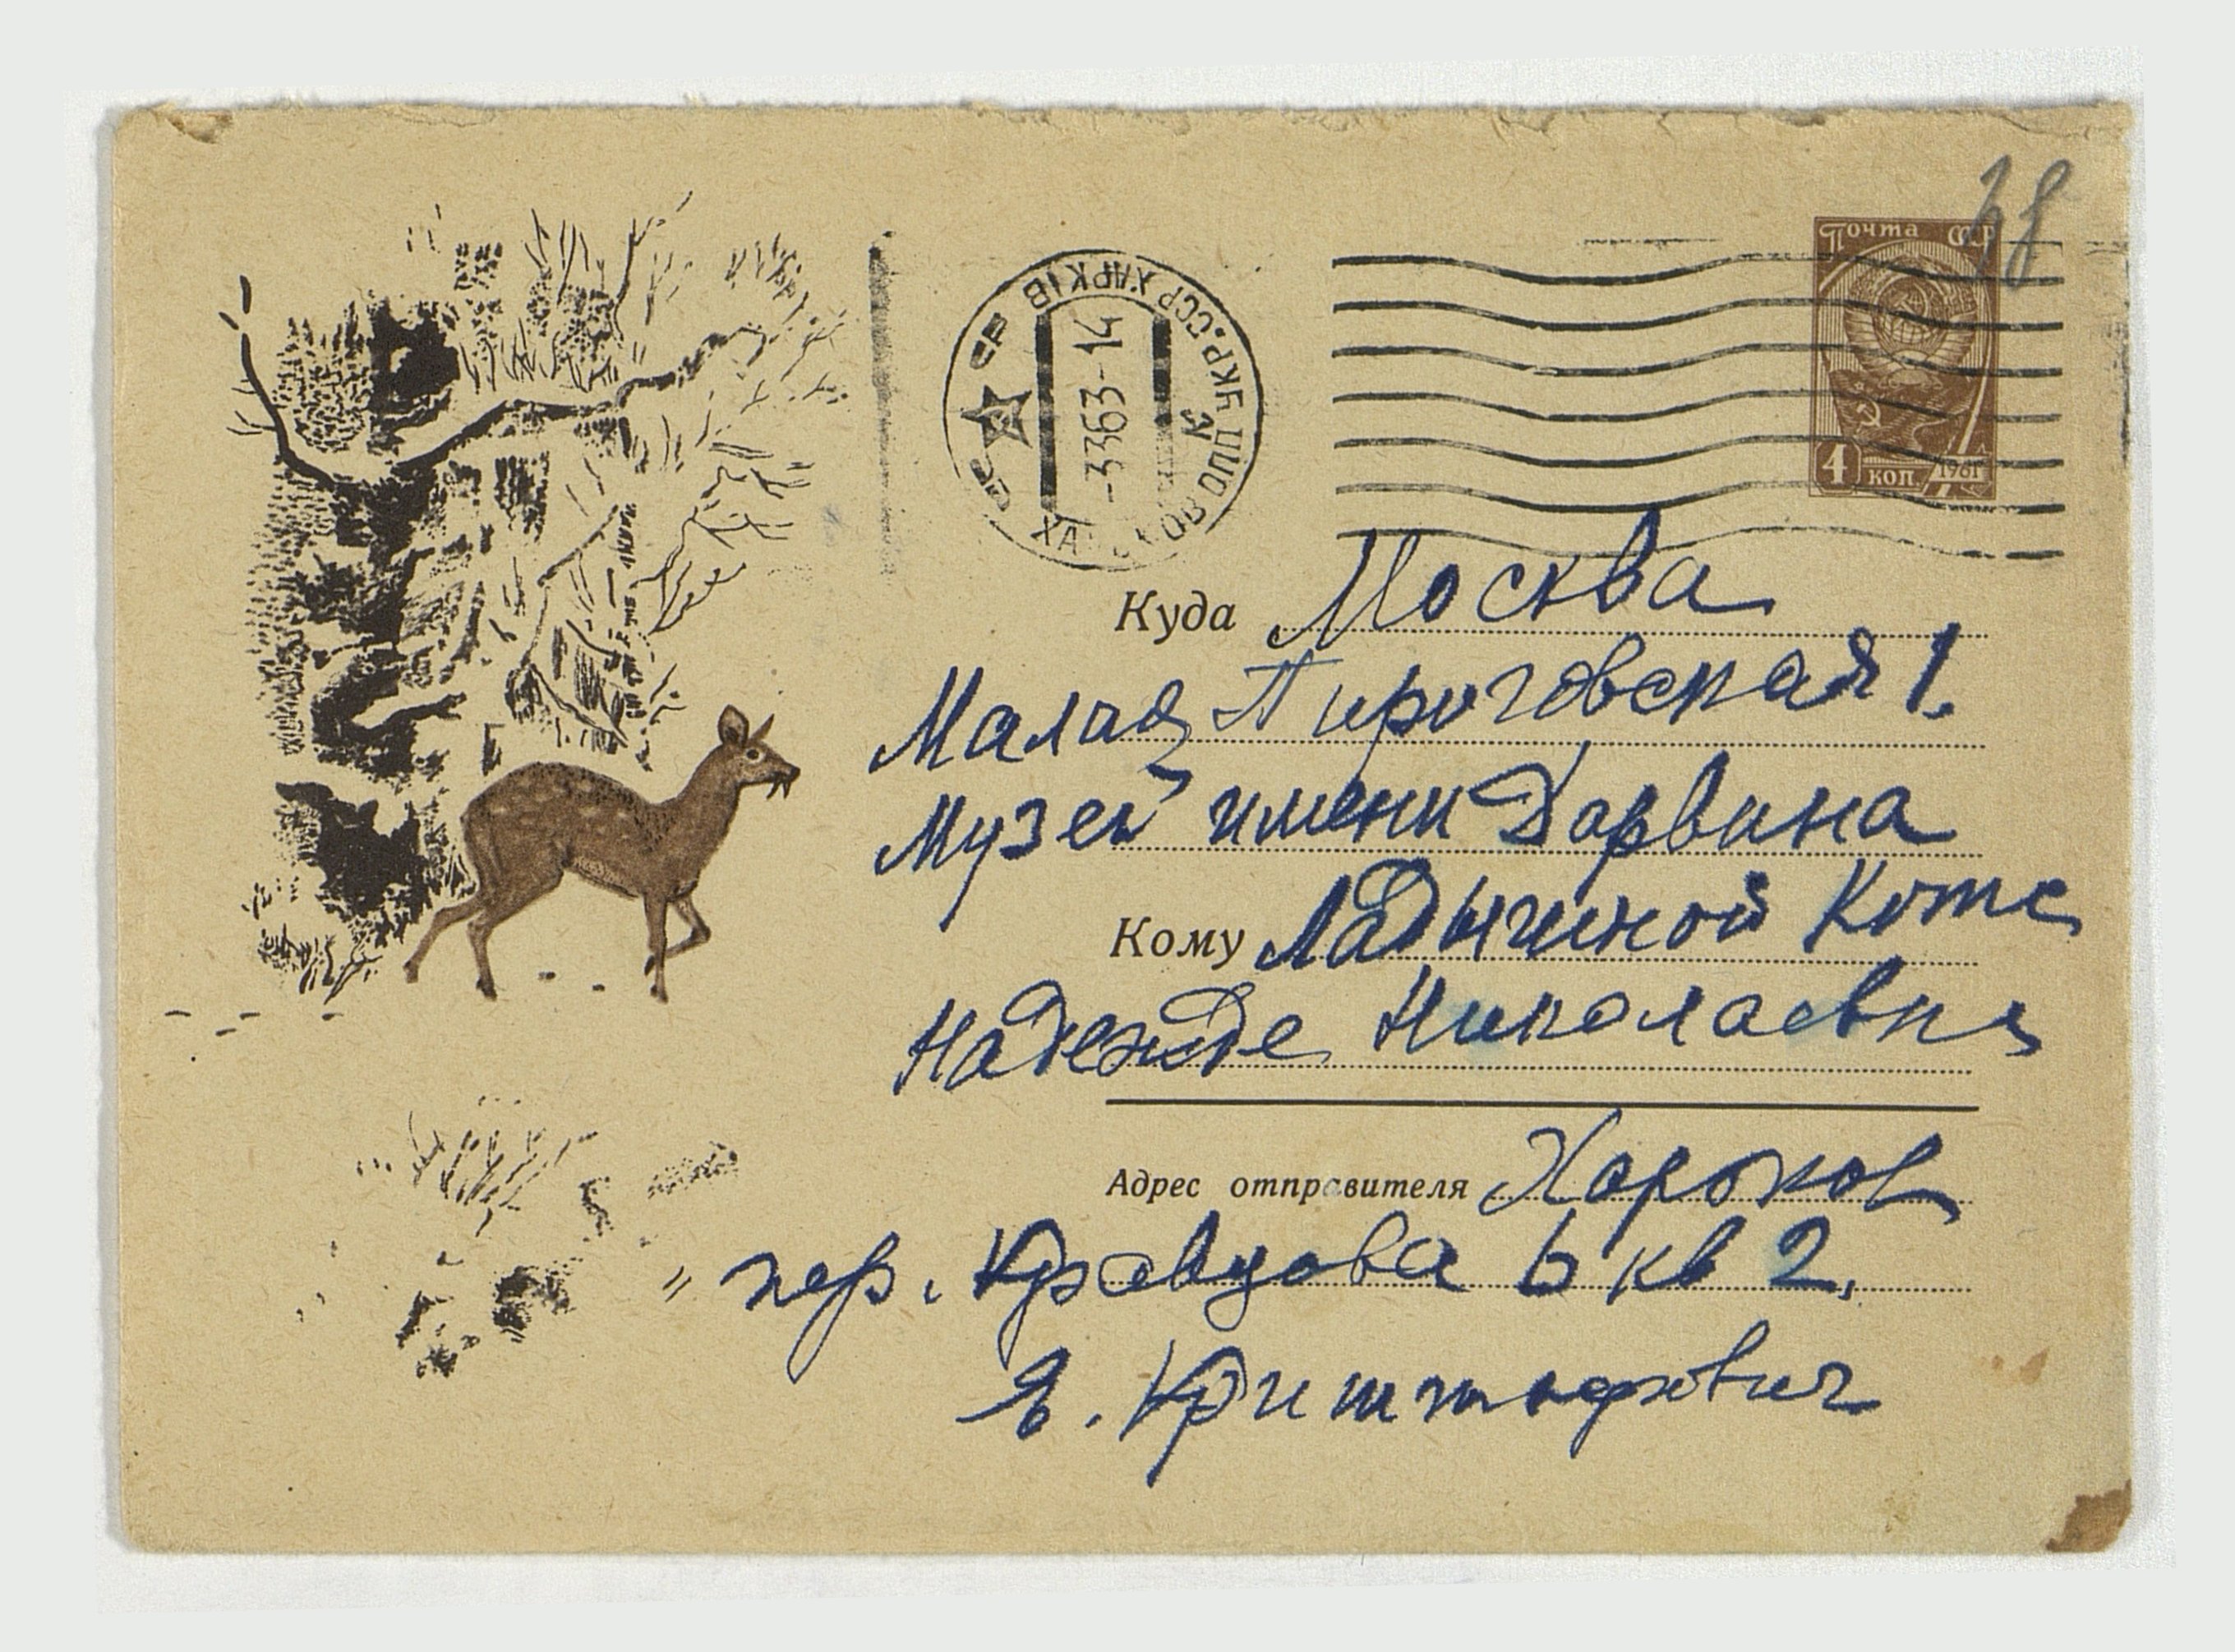 48
Почта СССР
4 коп. 1961
УКР. ССР ХАРКІВ
-3363-14
Куда Москва
Малая Пироговская 1.
Музей имени Дарвина
Кому Ладыгиной Котс
Надежде Николаевне
Адрес отправителя Харьков
" пер. Кравцова 6 кв 2.
Я. Криштофович